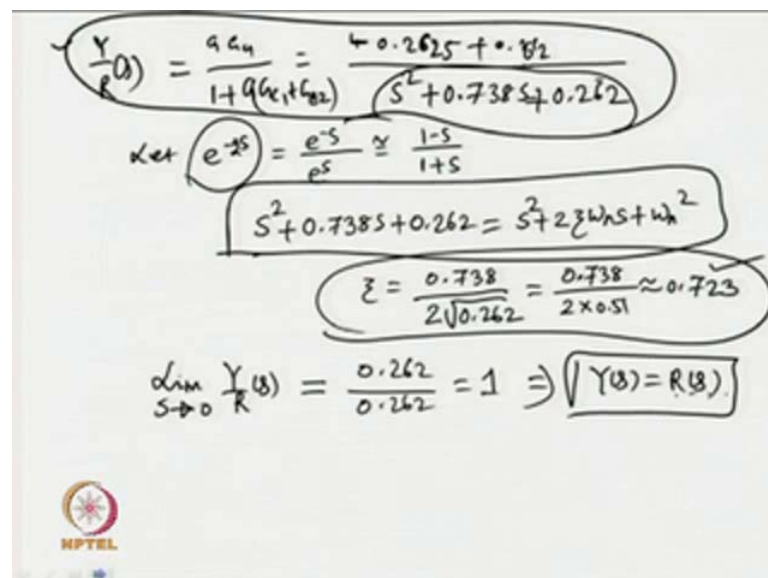 Y/R(s) = G G4 / 1+G(Gc1+Gc2) = 0.262 / s²+0.738s+0.262
Let e^-2s = e^-s / e^s ≃ 1-s / 1+s
s²+0.738s+0.262 = s²+2ξωns+ωn²
ξ = 0.738 / 2√0.262 = 0.738 / 2×0.51 ≈ 0.723
Lim s→0 Y/R(s) = 0.262 / 0.262 = 1 ⇒ Y(s) = R(s)
NPTEL